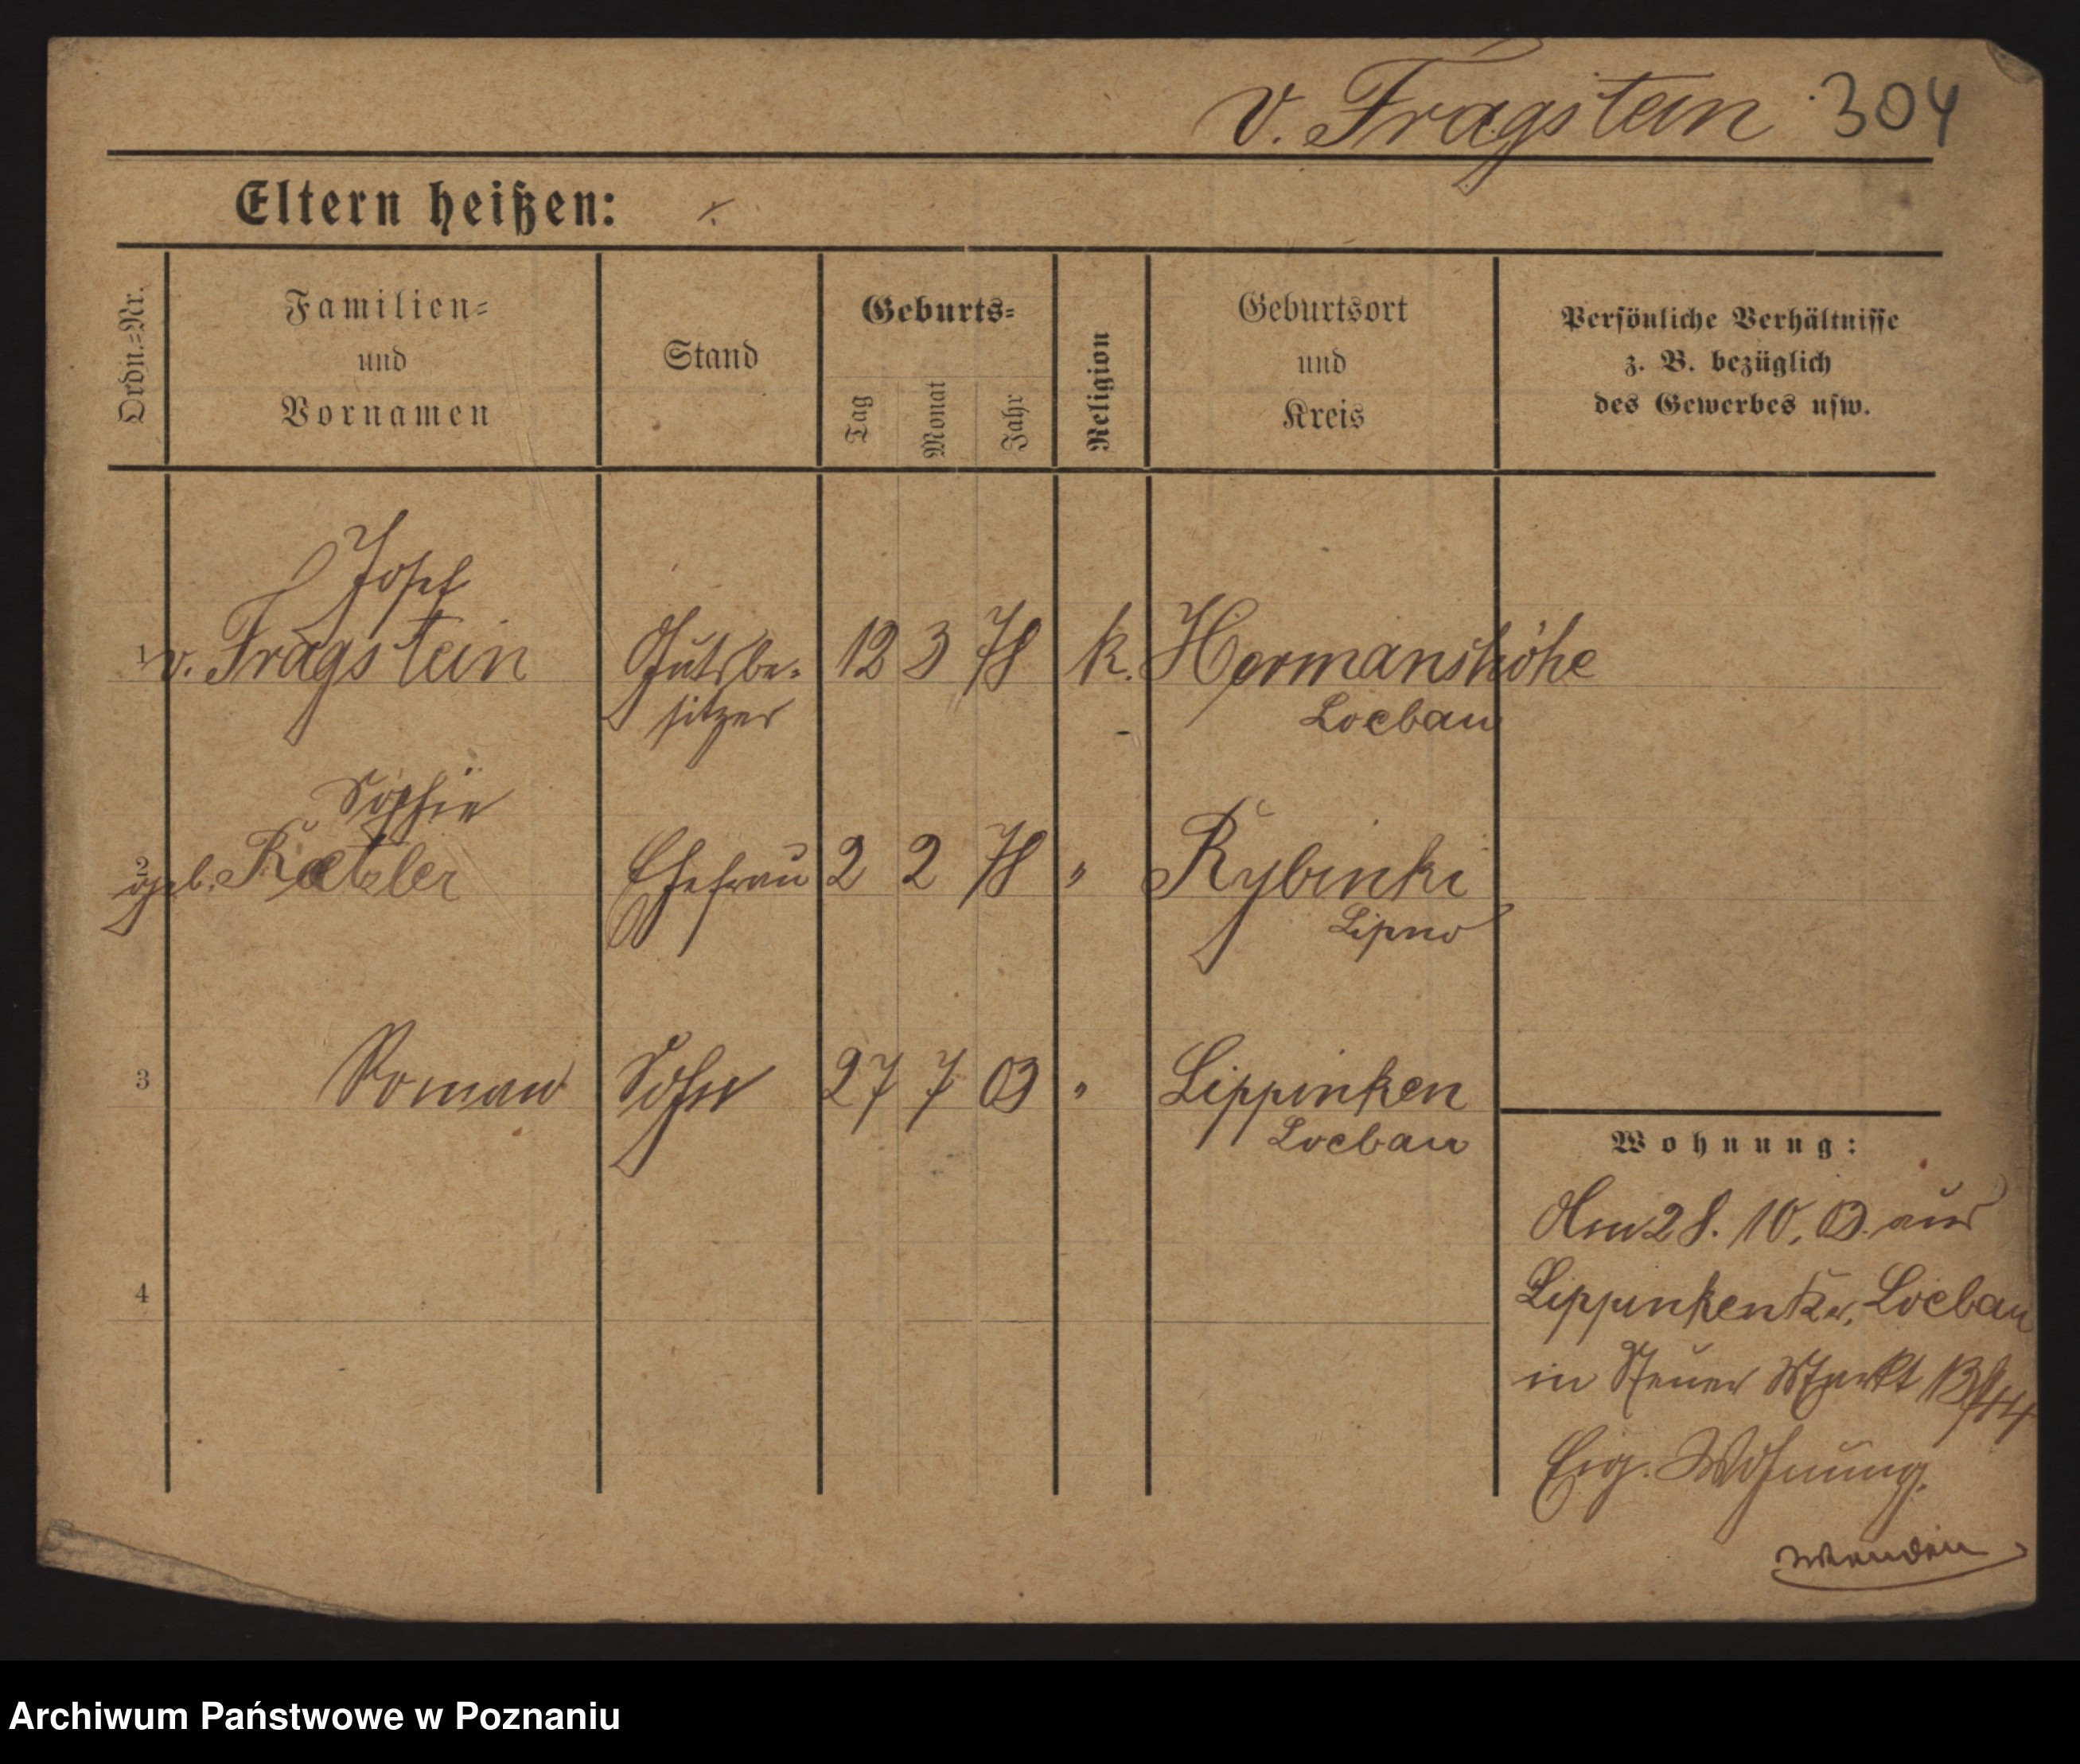 v. Fragstein 304
Eltern heißen:
Ordn.-Nr.
Familien-
und
Vornamen
Stand
Geburts-
Tag
Monat
Jahr
Religion
Geburtsort
und
Kreis
Persönliche Verhältnisse
z. B. bezüglich
des Gewerbes usw.
Josef
1 v. Fragstein Gutsbe- 12 3 78 k. Hermanshöhe
sitzer Loebau
Sophie
2 geb. Ehefrau 2 2 78 " Rybinki
Lipno
3 Roman Sohn 27 7 03 " Lippinken
Loebau
4
Wohnung:
Am 28. 10. 03. aus
Lippinken Kr. Loebau
in Neuer Markt
Eig. Wohnung.
Wenden
Archiwum Państwowe w Poznaniu